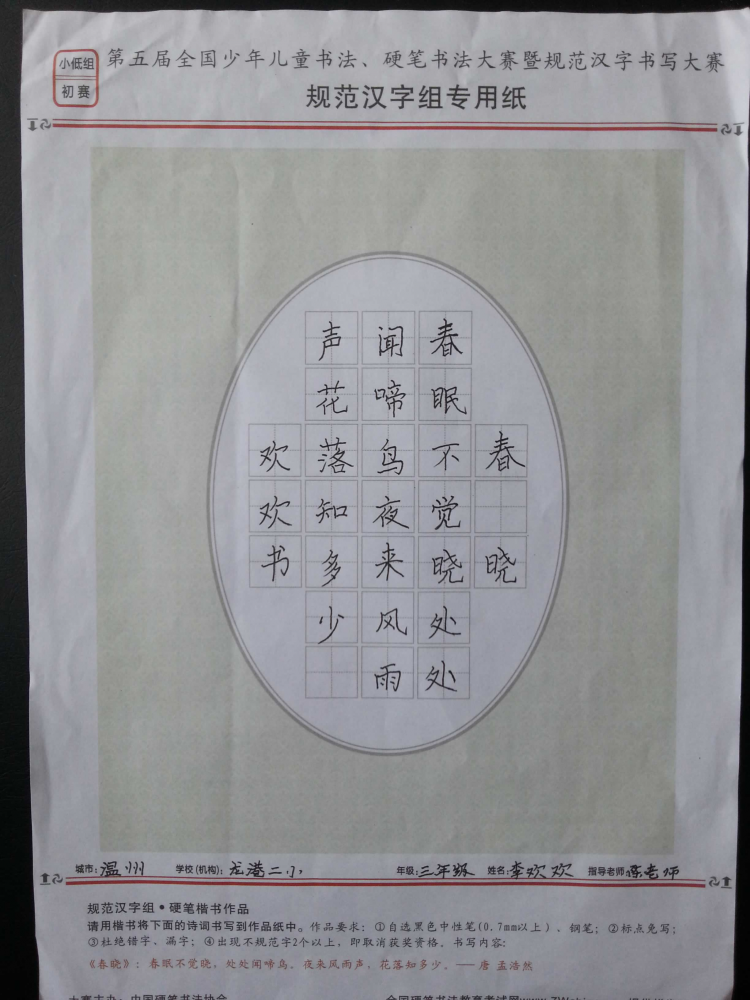 小低组
初赛
第五届全国少年儿童书法、硬笔书法大赛暨规范汉字书写大赛
规范汉字组专用纸
春晓
春眠不觉晓处处
闻啼鸟夜来风雨
声花落知多少
欢欢书
城市:温州 学校(机构):龙港二小 年级:三年级 姓名:李欢欢 指导老师:陈老师
规范汉字组•硬笔楷书作品
请用楷书将下面的诗词书写到作品纸中。作品要求:①自选黑色中性笔(0.7mm以上)、钢笔;②标点免写;
③杜绝错字、漏字;④出现不规范字2个以上,即取消获奖资格。书写内容:
《春晓》:春眠不觉晓,处处闻啼鸟。夜来风雨声,花落知多少。——唐 孟浩然
大赛主办:中国硬笔书法协会